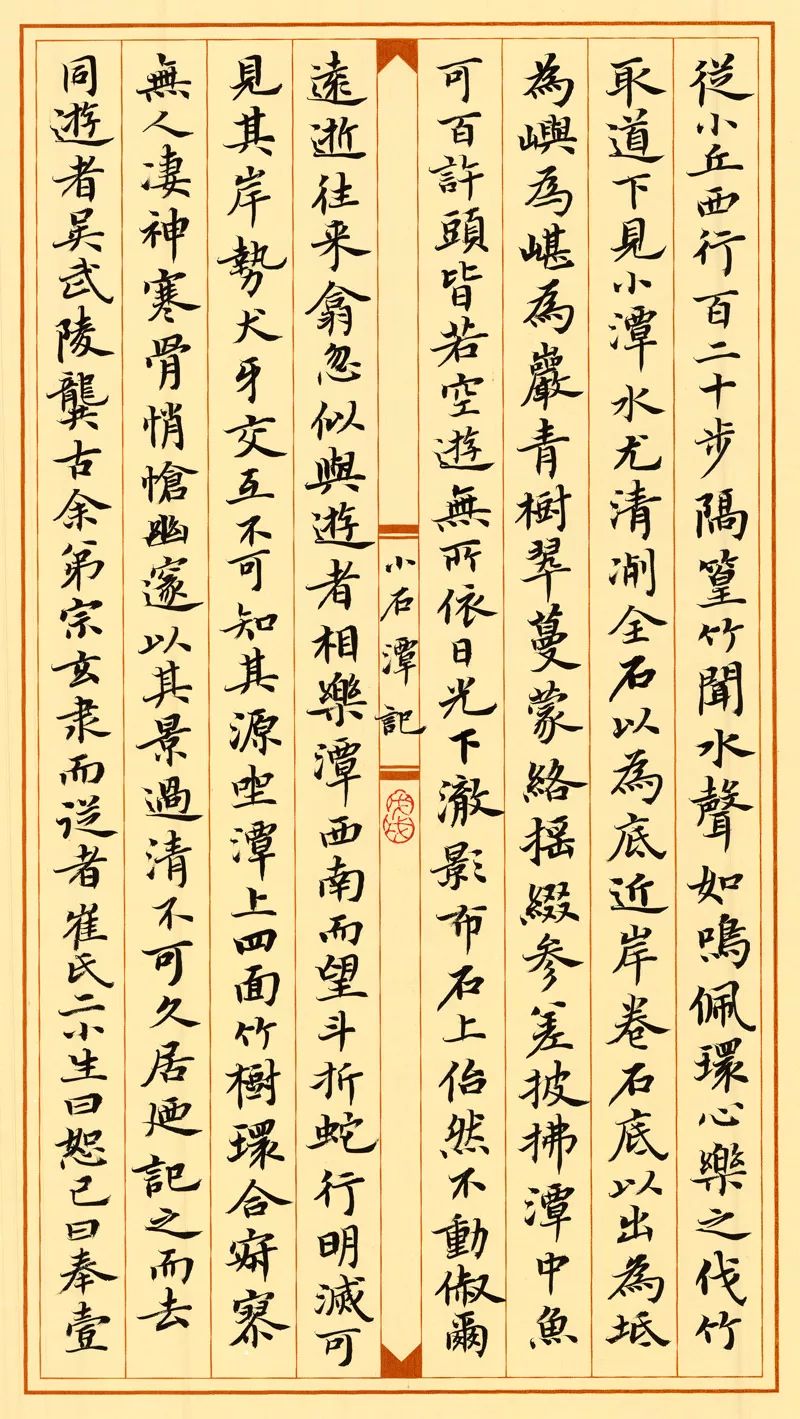 從小丘西行百二十步隔篁竹聞水聲如鳴佩環心樂之伐竹
取道下見小潭水尤清冽全石以為底近岸卷石底以出為坻
為嶼為嵁為巖青樹翠蔓蒙絡摇綴參差披拂潭中魚
可百許頭皆若空遊無所依日光下澈影布石上佁然不動俶爾
小石潭記
遠逝往来翕忽似與遊者相樂潭西南而望斗折蛇行明滅可
見其岸勢犬牙交互不可知其源坐潭上四面竹樹環合寂寥
無人凄神寒骨悄愴幽邃以其景過清不可久居廼記之而去
同遊者吴武陵龔古余弟宗玄隶而從者崔氏二小生曰恕己曰奉壹